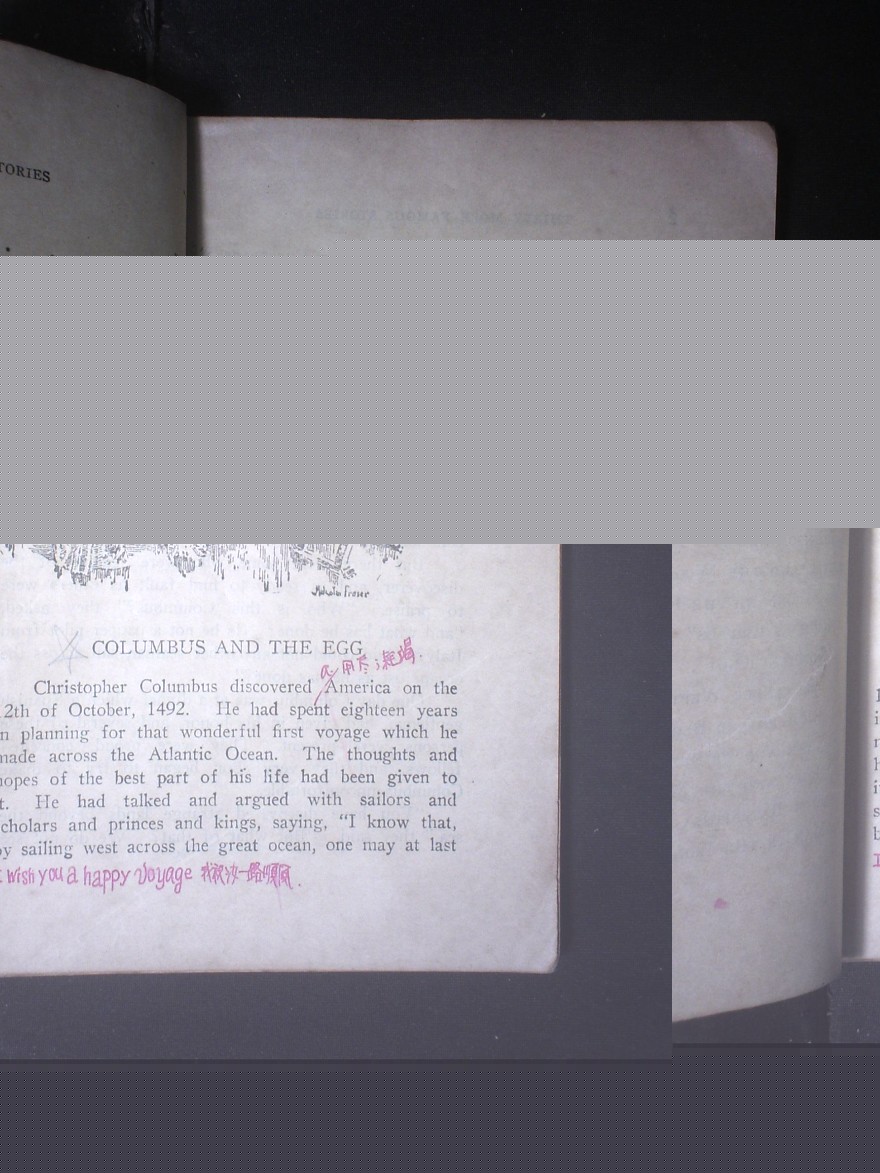 TORIES
Malcolm Fraser
COLUMBUS AND THE EGG
a. 用尽;耗竭.
Christopher Columbus discovered America on the
2th of October, 1492. He had spent eighteen years
n planning for that wonderful first voyage which he
made across the Atlantic Ocean. The thoughts and
hopes of the best part of his life had been given to
t. He had talked and argued with sailors and
cholars and princes and kings, saying, “I know that,
by sailing west across the great ocean, one may at last
wish you a happy Voyage 我祝汝一路順風.